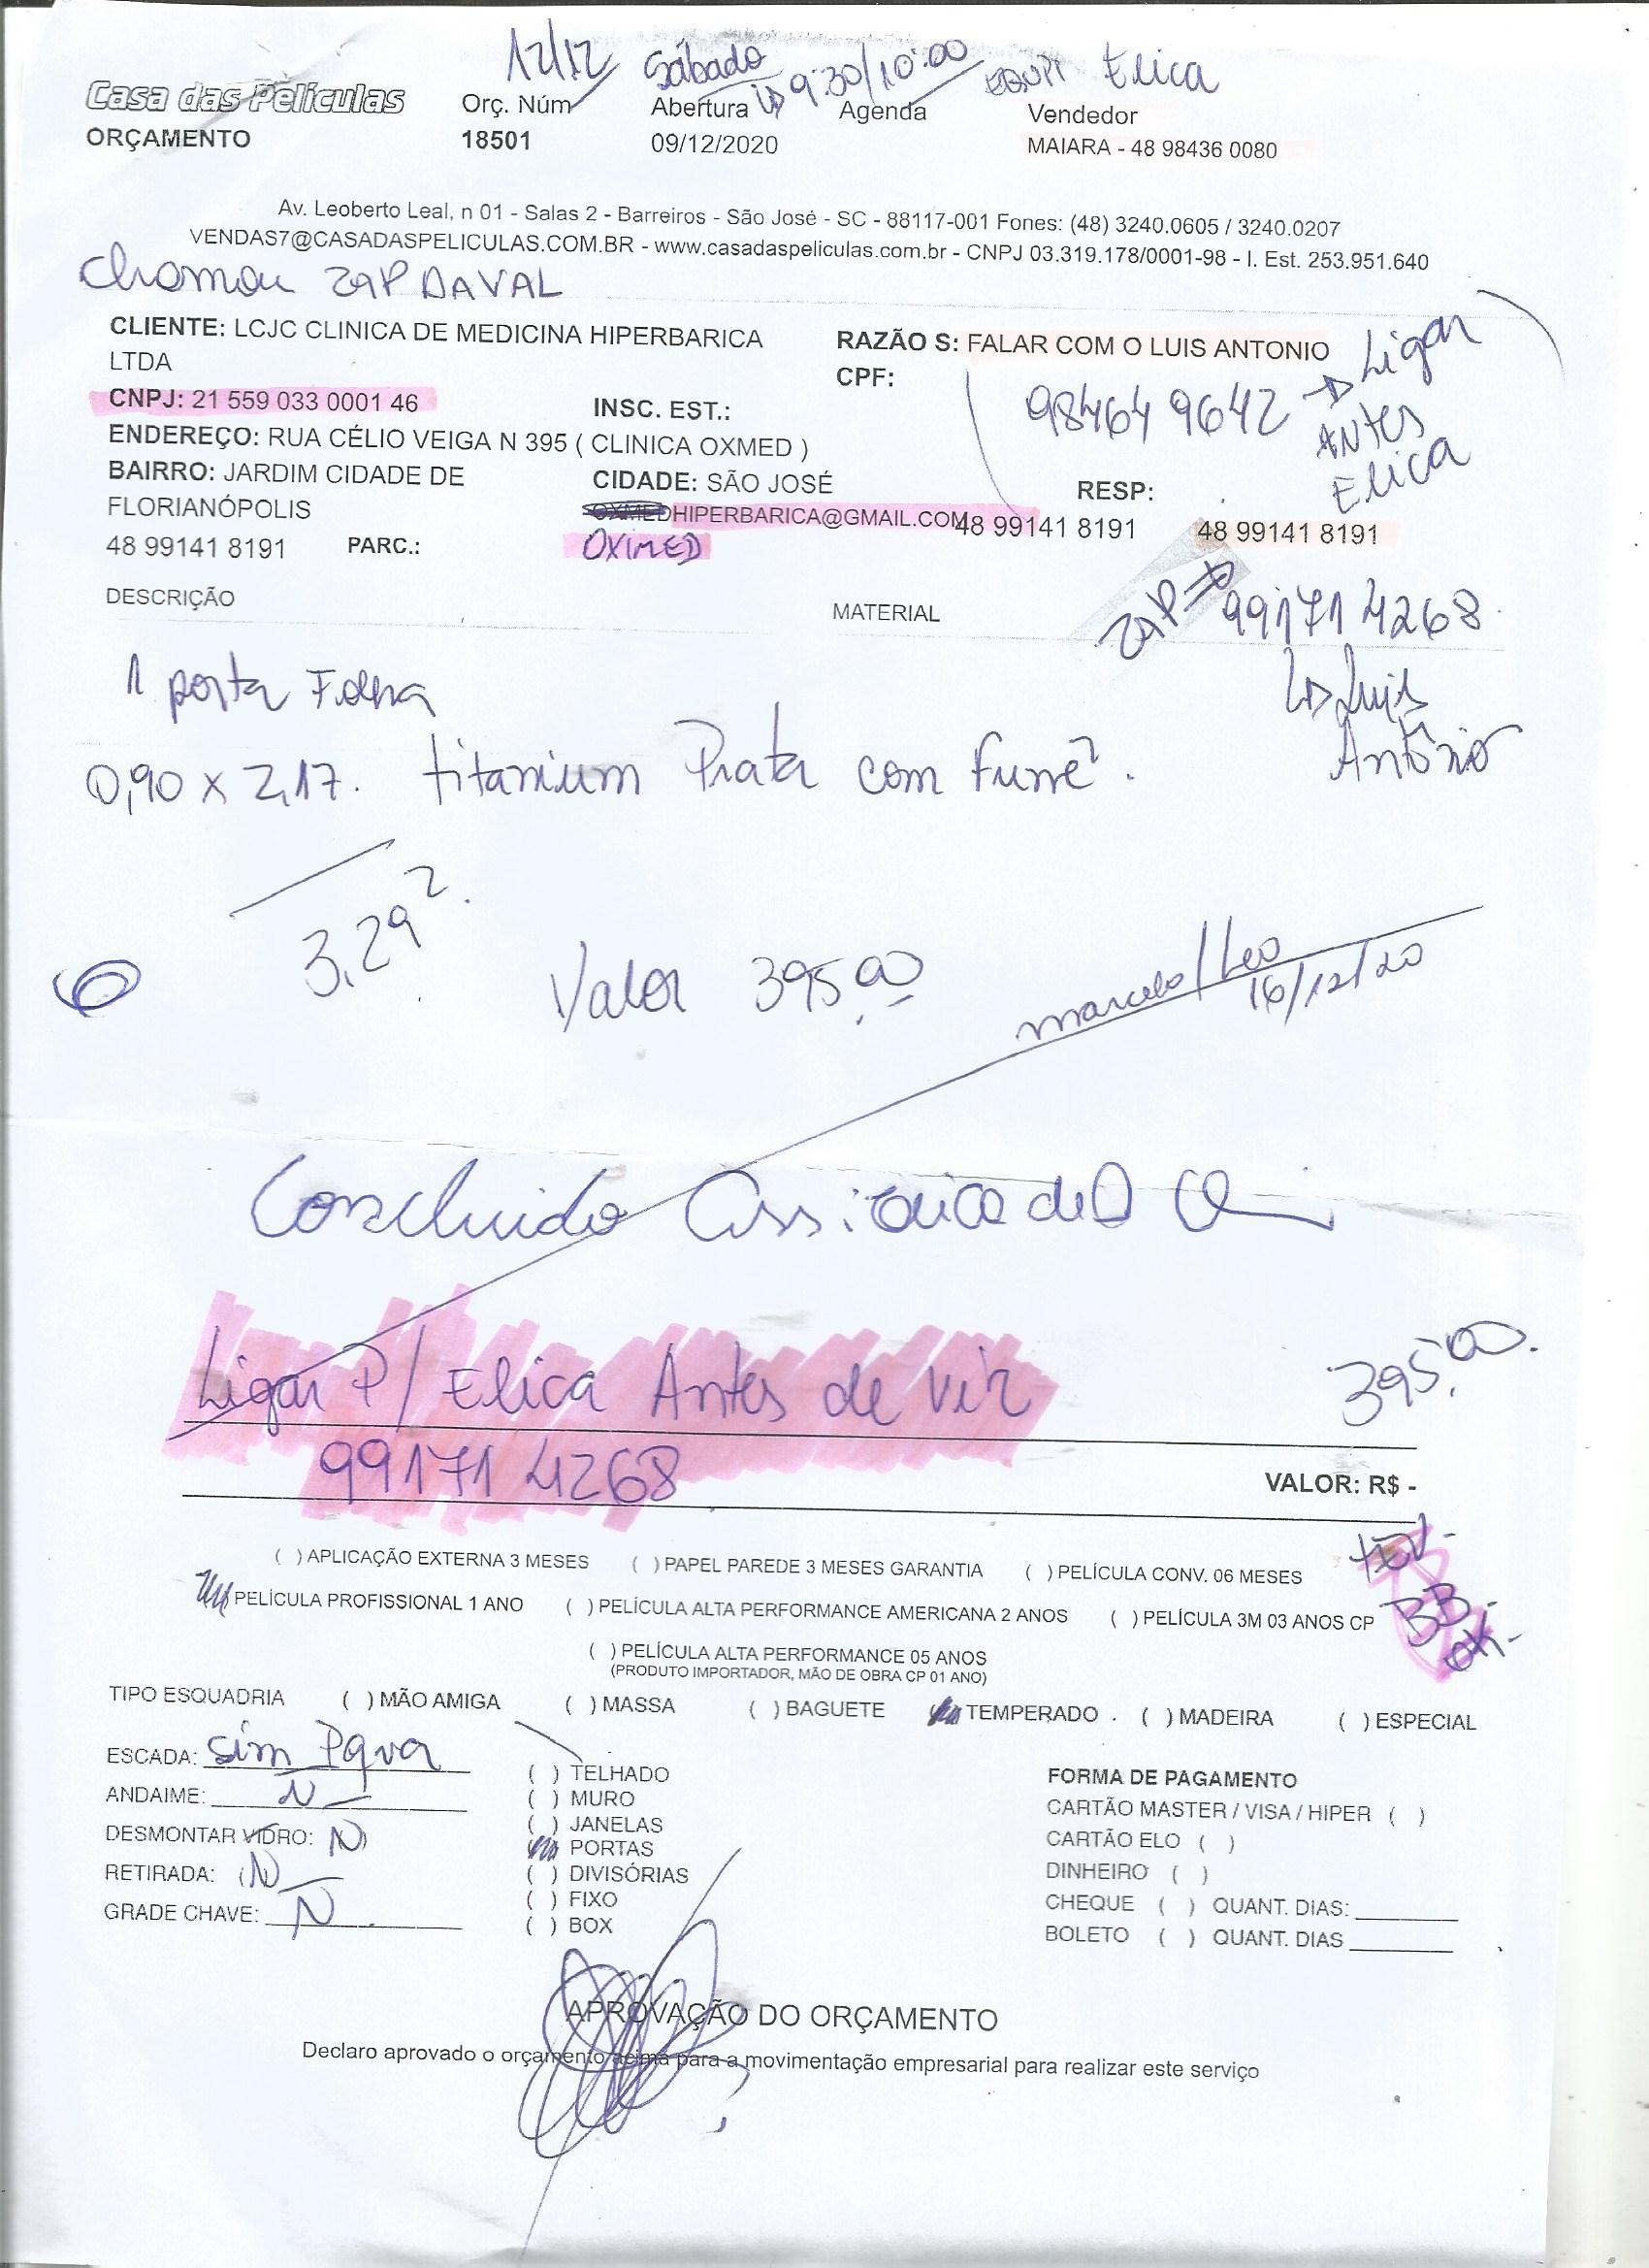 12/12 Sábado 9:30/10:00 Elica
Casa das Películas
ORÇAMENTO
Orç. Núm Abertura Agenda Vendedor
18501 09/12/2020 MAIARA - 48 98436 0080
Av. Leoberto Leal, n 01 - Salas 2 - Barreiros - São José - SC - 88117-001 Fones: (48) 3240.0605 / 3240.0207
VENDAS7@CASADASPELICULAS.COM.BR - www.casadaspeliculas.com.br - CNPJ 03.319.178/0001-98 - I. Est. 253.951.640
Chamou ZAP DAVAL
CLIENTE: LCJC CLINICA DE MEDICINA HIPERBARICA LTDA
RAZÃO S: FALAR COM O LUIS ANTONIO
CPF:
984649642 Ligar
ANTES
Elica
CNPJ: 21 559 033 0001 46 INSC. EST.:
ENDEREÇO: RUA CÉLIO VEIGA N 395 ( CLINICA OXMED )
BAIRRO: JARDIM CIDADE DE FLORIANÓPOLIS
CIDADE: SÃO JOSÉ RESP:
OXMEDHIPERBARICA@GMAIL.COM 48 99141 8191 48 99141 8191
48 99141 8191 PARC.: OXIMED
DESCRIÇÃO MATERIAL
ZAP 991714268
Luis
Antônio
1 porta Folha
0,90 x 2,17. titanium Prata com Fumê.
3,29²
Valor 395,00
marcelo/Leo
16/12/20
Concluido
Ligar P/ Elica Antes de vir
991714268
395,00
VALOR: R$ -
( ) APLICAÇÃO EXTERNA 3 MESES ( ) PAPEL PAREDE 3 MESES GARANTIA ( ) PELÍCULA CONV. 06 MESES
PELÍCULA PROFISSIONAL 1 ANO ( ) PELÍCULA ALTA PERFORMANCE AMERICANA 2 ANOS ( ) PELÍCULA 3M 03 ANOS CP
BB
( ) PELÍCULA ALTA PERFORMANCE 05 ANOS
(PRODUTO IMPORTADOR, MÃO DE OBRA CP 01 ANO)
TIPO ESQUADRIA ( ) MÃO AMIGA ( ) MASSA ( ) BAGUETE TEMPERADO . ( ) MADEIRA ( ) ESPECIAL
ESCADA: Sim
ANDAIME: N
DESMONTAR VIDRO: N
RETIRADA: N
GRADE CHAVE: N
( ) TELHADO
( ) MURO
( ) JANELAS
PORTAS
( ) DIVISÓRIAS
( ) FIXO
( ) BOX
FORMA DE PAGAMENTO
CARTÃO MASTER / VISA / HIPER ( )
CARTÃO ELO ( )
DINHEIRO ( )
CHEQUE ( ) QUANT. DIAS:
BOLETO ( ) QUANT. DIAS
APROVAÇÃO DO ORÇAMENTO
Declaro aprovado o orçamento acima para a movimentação empresarial para realizar este serviço